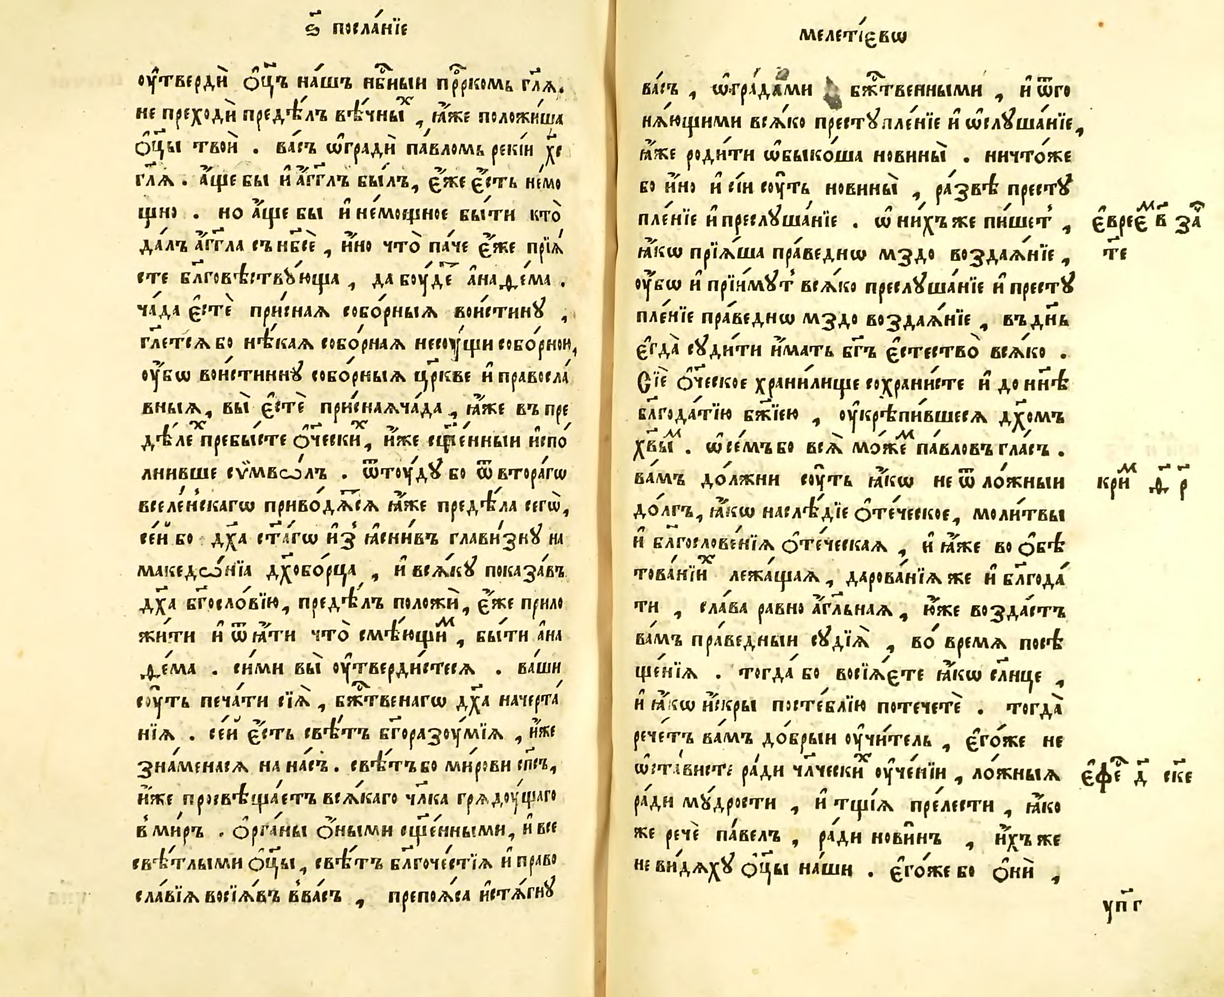 ѕ҃ посла́нїе
оу҆твердѝ ѻ҆ц҃ъ на́шъ нб҃ныи пр҃ркомь гл҃ѧ.
не преходѝ предѣ́лъ вѣ́чныⷯ , ꙗ҆́же положи́ша
ѻ҆ц҃ы твоѝ . ва́съ ѡ҆градѝ па́вломь рекі́и х҃е
гл҃ѧ . а҆́ще бы и҆ а҆́гг҃лъ бы́лъ, є҆́же є҆́сть немо
щно . но а҆́ще бы и҆ немощное бы́ти кто̀
да́лъ а҆́гг҃ла съ нб҃сѐ , и҆́но что̀ па́че є҆́же прїѧ́
сте бл҃говѣствꙋ́юща , да бꙋ́деⷮ а҆на́ѳема .
ча́да є҆стѐ при́снаѧ собо́рныѧ вои́стинꙋ ,
гл҃етсѧ бо нѣ́каѧ собо́рнаѧ несꙋ́щи собо́рнои,
оу҆́бѡ вои́стиннꙋ собо́рныѧ цр҃кве и҆ правосла́
вныѧ, вы̀ є҆стѐ при́снаѧ ча́да , ꙗ҆́же въ пре
дѣ́леⷯ пребы́сте ѻ҆́ческиⷯ, и҆́же сщ҃е́нныи и҆спо́
лнивше сѵ́мвѡлъ . ѿтоу́дꙋ бо ѿ втора́гѡ
вселе́нскагѡ приво́дѧⷮсѧ ꙗ҆́же предѣ́ла сего̀,
се́и бо дх҃а ст҃а́гѡ и҆з̾ ꙗ҆сни́въ глави́знꙋ на
македѡ́нїа дх҃обо́рца , и҆ всѧ́кꙋ показа́въ
дх҃а бг҃осло́вїю, предѣ́лъ положѝ, є҆́же прило
жи́ти и҆ ѿ ꙗ҆́ти что̀ смѣ́ющиⷨ , бы́ти а҆на́
ѳема . си́ми вы̀ оу҆тверди́стесѧ . ва́ши
сꙋ́ть печа́ти сїѧ̀ , бж҃твенагѡ дх҃а начерта́
нїѧ . се́й є҆́сть свѣ́тъ бг҃оразоу́мїѧ , и҆́же
зна́менасѧ на на́съ. свѣ́тъ бо ми́рови сп҃съ,
и҆́же просвѣща́етъ всѧ́каго чл҃ка грѧдоу́щаго
в̾ ми́ръ . ѻ҆рга́ны ѻ҆́ными сщ҃е́нными, и҆ все
свѣ́тлыми ѻ҆ц҃ы, свѣ́тъ бл҃гоче́стїѧ и҆ право
сла́вїѧ возсїѧ́въ в̾ ва́съ , препоѧ́са и҆стѧ́гнꙋ
меле́тїєвѡ
ва́съ , ѡ҆гра́дами бж҃твенными , и҆ ѿго
нѧ́ющими всѧ́ко престꙋпле́нїе и҆ ѡ҆слꙋша́нїе,
ꙗ҆́же роди́ти ѡ҆быко́ша новины̀ . ничто́же
бо и҆́но и҆ сі́и сꙋ́ть новины̀ , ра́звѣ престꙋ
пле́нїе и҆ преслꙋша́нїе . ѡ҆ ни́хъ же пи́шет̾ ,
ꙗ҆́кѡ прїѧ́ша пра́веднѡ мздо воздаѧ́нїе ,
оу҆́бѡ и҆ прїи́мꙋт̾ всѧ́ко преслꙋша́нїе и҆ престꙋ
пле́нїе пра́веднѡ мздо воздаѧ́нїе , въ дн҃ь
є҆гда̀ сꙋди́ти и҆́мать бг҃ъ є҆стество̀ всѧ́ко .
Сїѐ ѻ҆́ческое храни́лище сохрани́сте и҆ до нн҃ѣ
бл҃года́тїю бж҃їею , оу҆крѣпи́вшесѧ дх҃омъ
хв҃ыⷨ . ѡ҆ се́мъ бо всѧ̀ мо́жеⷨ па́вловъ гла́съ .
ва́мъ до́лжни сꙋ́ть ꙗ҆́кѡ не ѿ ло́жныи
до́лгъ, ꙗ҆́кѡ наслѣ́дїе ѻ҆те́ческое, моли́твы
и҆ благослове́нїѧ ѻ҆те́ческаѧ , и҆ ꙗ҆́же во ѻ҆бѣ
това́нїиⷯ лежа́щаѧ , дарова́нїѧ же и҆ бл҃года́
ти , сла́ва равно а҆́гг҃льнаѧ , ю҆́же возда́стъ
ва́мъ пра́ведныи сꙋдїѧ̀ , во́ время посѣ
ще́нїѧ . тогда́ бо возсїѧ́єте ꙗ҆́кѡ сл҃нце ,
и҆ ꙗ҆́кѡ и҆́скры по стє́блїю потечетѐ . тогда̀
рече́тъ ва́мъ до́брыи оу҆чи́тель , є҆го́же не
ѡ҆ста́висте ра́ди чл҃ческиⷯ оу҆че́нїи , ло́жныѧ
ра́ди мꙋ́дрости , и҆ тщїѧ̀ пре́лести , ꙗ҆́ко
же речѐ па́вел̾ , ра́ди новинъ , и҆́хъ же
не ви́дѧхꙋ ѻ҆ц҃ы на́ши . є҆го́же бо ѻ҆нѝ ,
є҆вре́єⷨ в҃ за
те
криⷩ ѳ҃ р҃
є҆фе д҃ ске
ѵп҃г